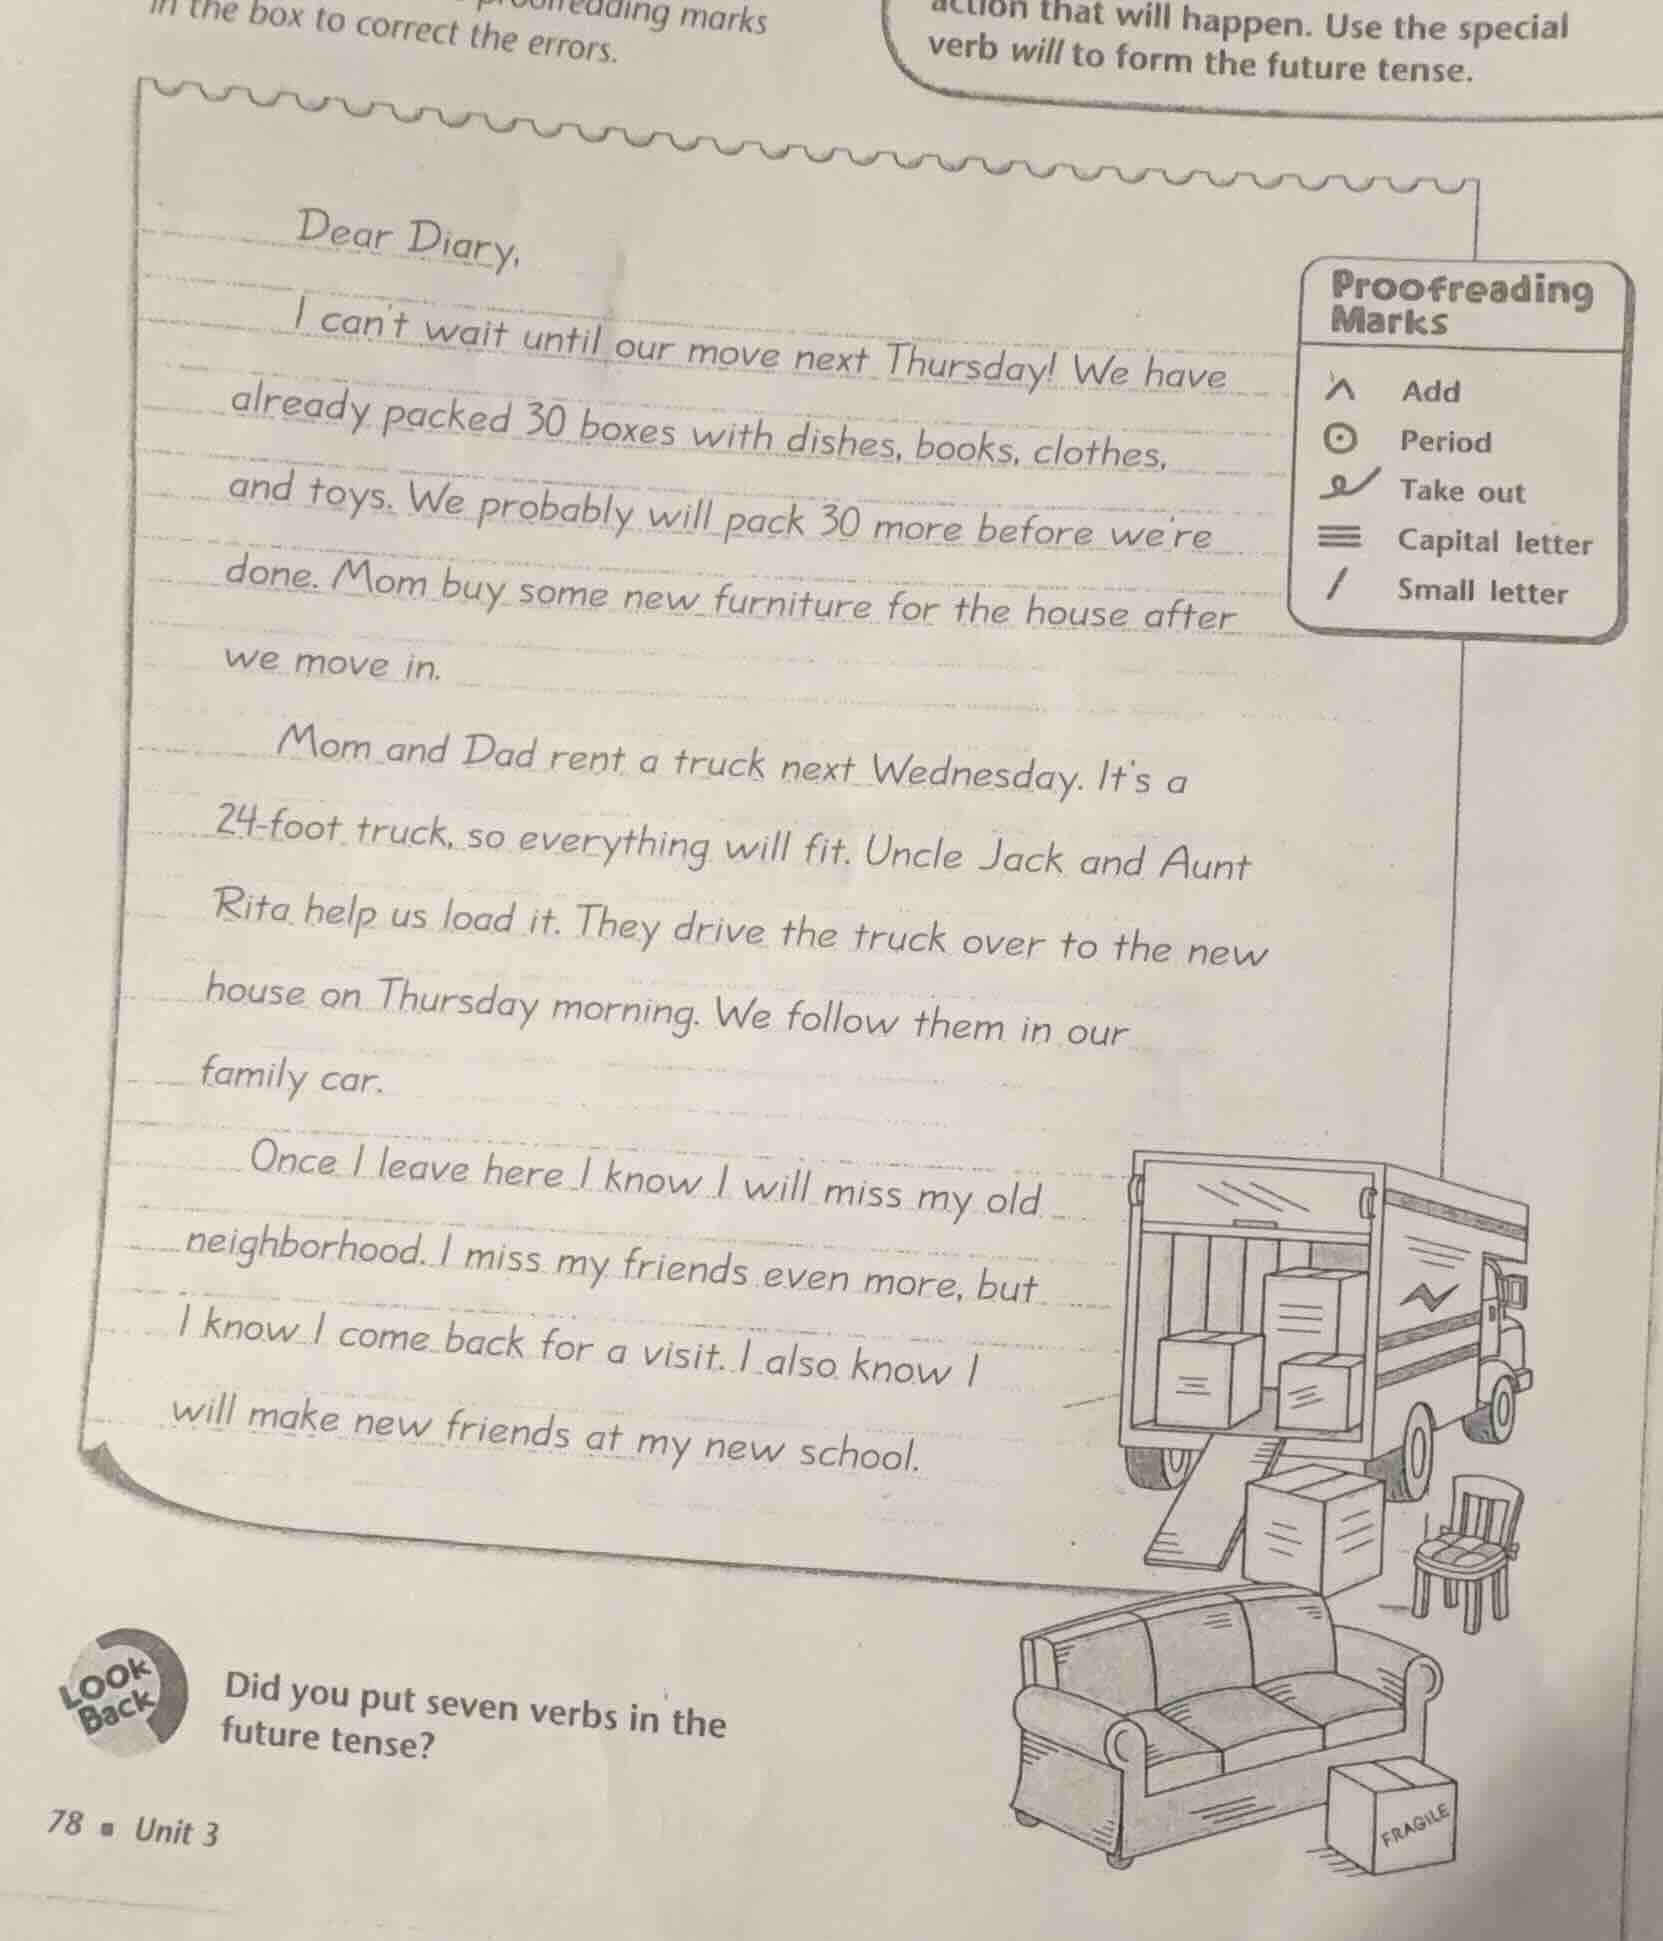 proofreading marks
in the box to correct the errors.
action that will happen. Use the special
verb will to form the future tense.
Dear Diary,
I can't wait until our move next Thursday! We have
already packed 30 boxes with dishes, books, clothes,
and toys. We probably will pack 30 more before we're
done. Mom buy some new furniture for the house after
we move in.
Mom and Dad rent a truck next Wednesday. It's a
24-foot truck, so everything will fit. Uncle Jack and Aunt
Rita help us load it. They drive the truck over to the new
house on Thursday morning. We follow them in our
family car.
Once I leave here I know I will miss my old
neighborhood. I miss my friends even more, but
I know I come back for a visit. I also know I
will make new friends at my new school.
Proofreading
Marks
Add
Period
Take out
Capital letter
Small letter
FRAGILE
Look
Back
Did you put seven verbs in the
future tense?
78 ▪ Unit 3